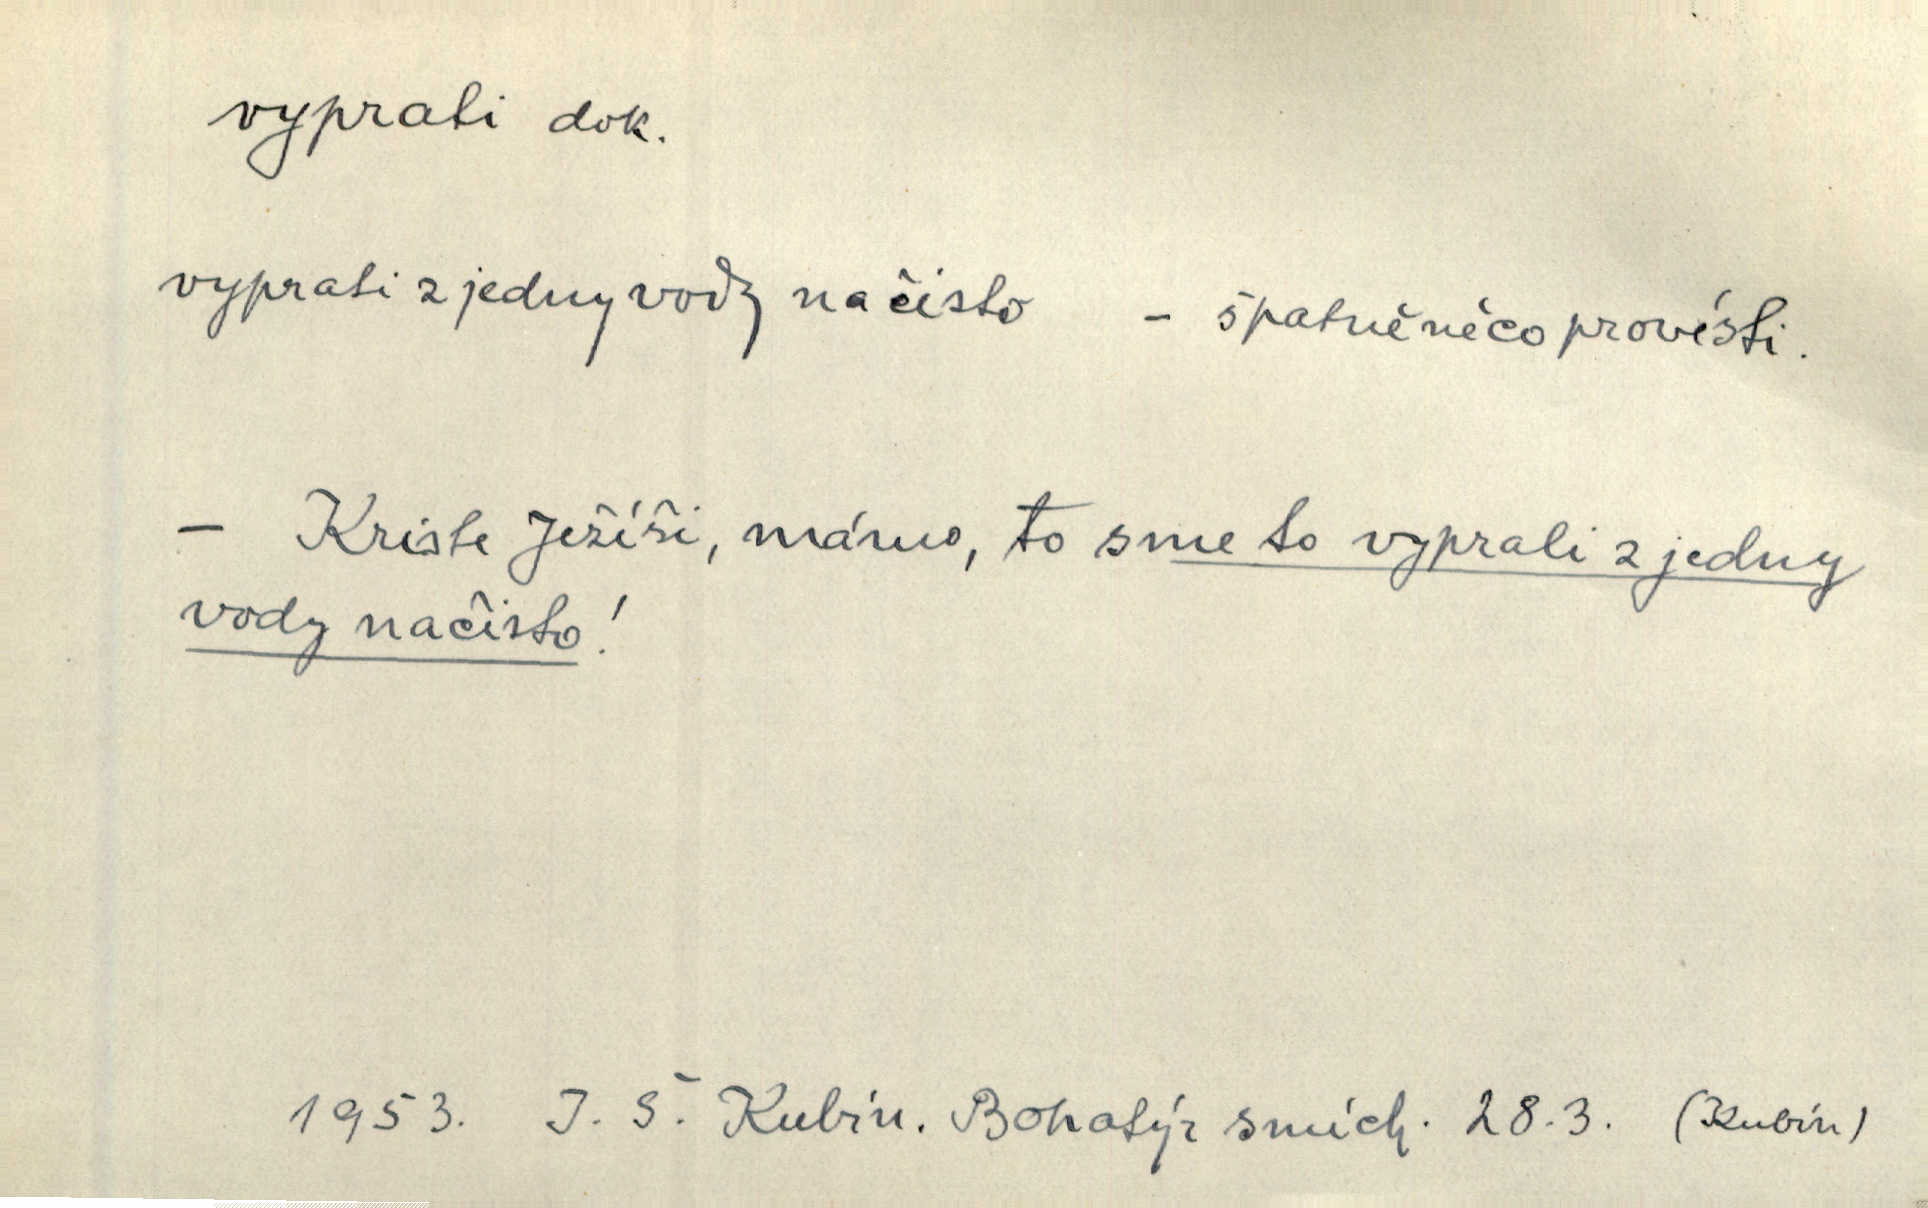 vyprati dok.
vyprati z jedny vody načisto – špatně něco provésti.
– Kriste Ježíši, mámo, to sme to vyprali z jedny
vody načisto!
1953. J. Š. Kubín. Bohatýr smích. 28.3. (Kubín)